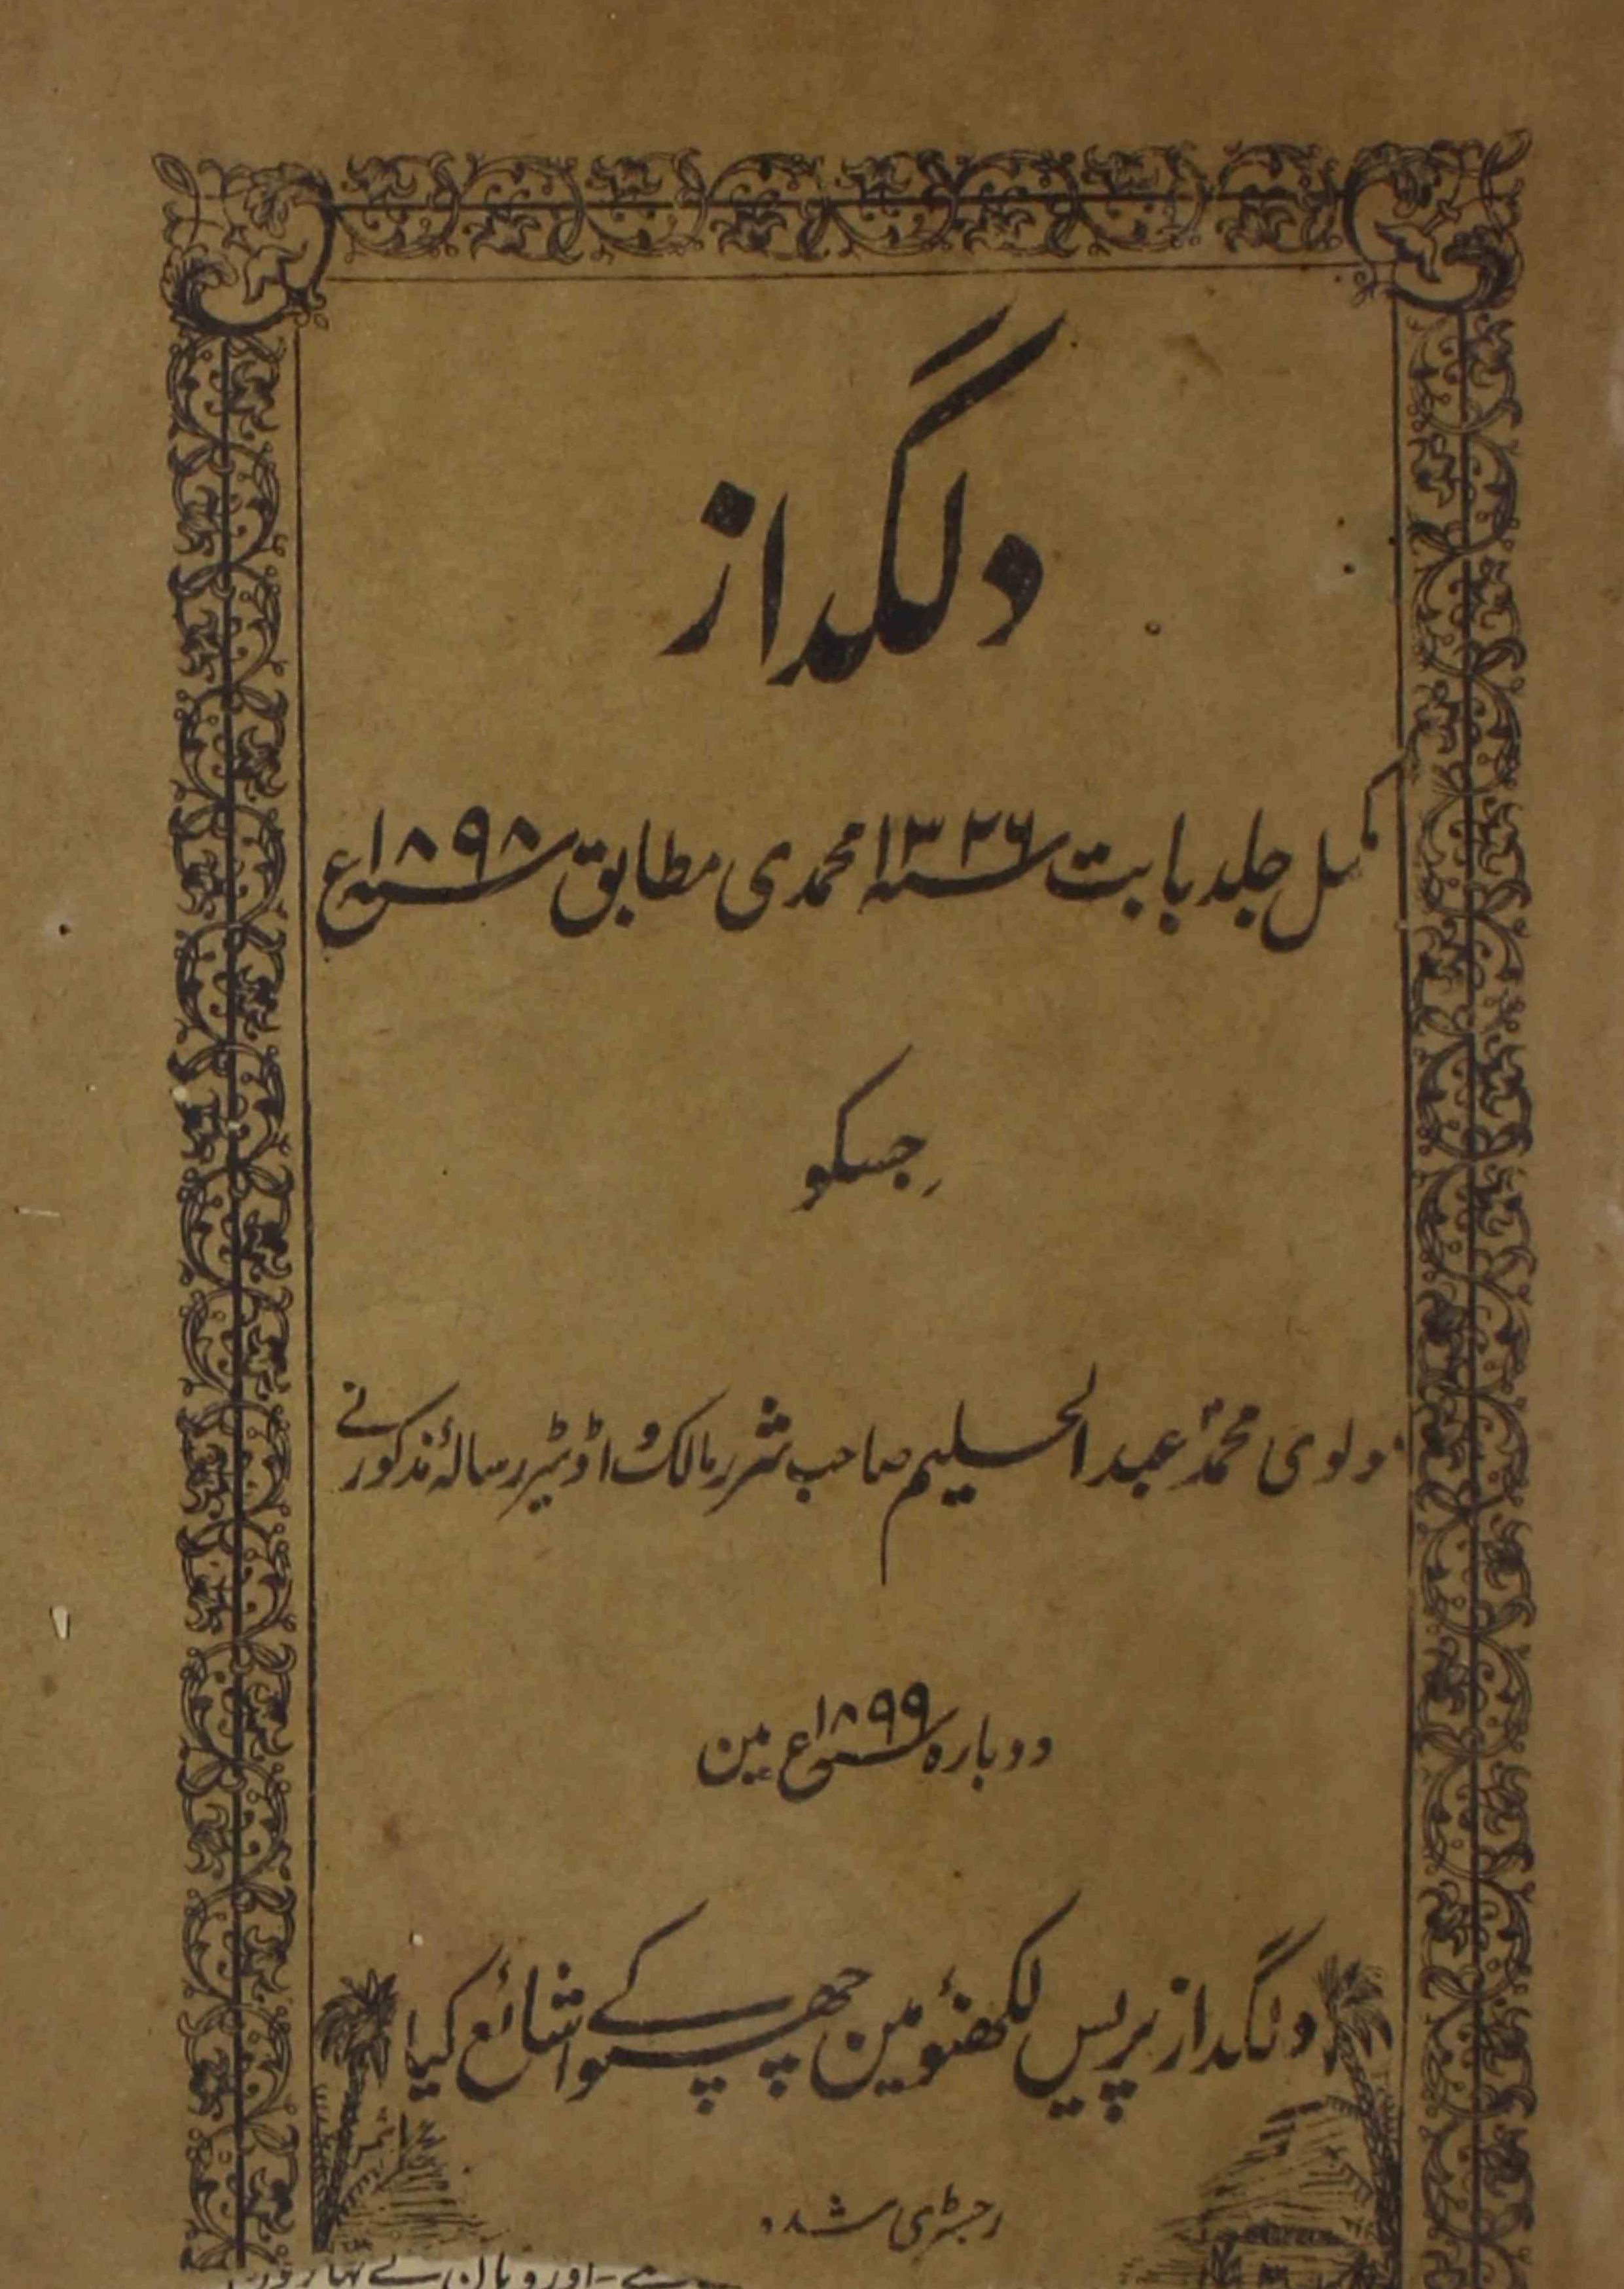 دلگداز
مکمل جلد بابت سنہ ۱۳۲۶ محمدی مطابق سنہ ۱۸۹۸ع
جسکو
مولوی محمد عبد الحلیم صاحب شرر مالک و اڈیٹر رسالۂ مذکور نے
دوبارہ سنہ ۱۸۹۹ع مین
دلگداز پریس لکھنؤ مین چھپوا کے شائع کیا
رجسٹری شدہ